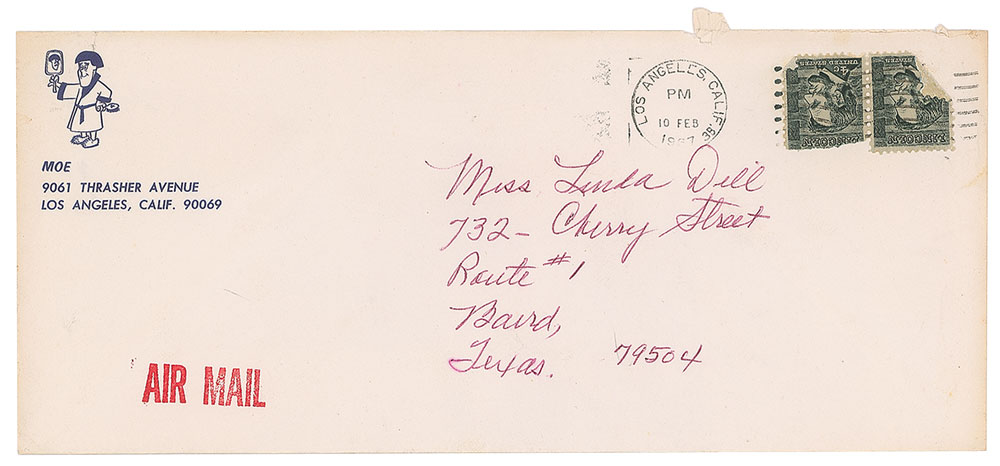 MOE
9061 THRASHER AVENUE
LOS ANGELES, CALIF. 90069
LOS ANGELES, CALIF.
PM
10 FEB
1967
4c
UNITED STATES
Miss Linda Dill
732- Cherry Street
Route #1
Baird,
Texas. 79504
AIR MAIL